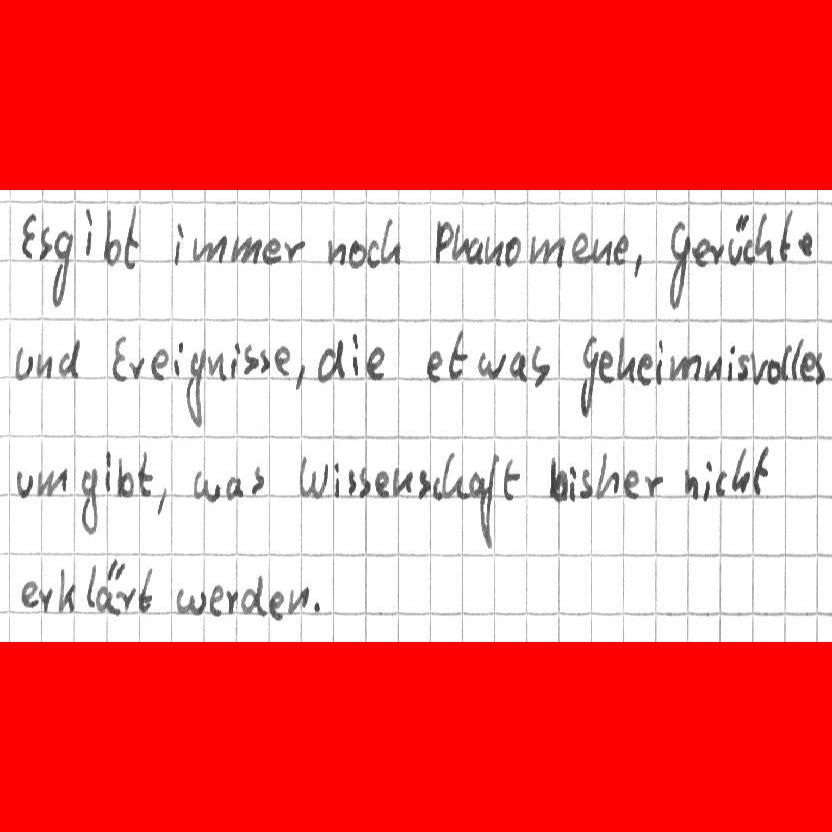 Es gibt immer noch Phanomene, Gerüchte
und Ereignisse, die etwas Geheimnisvolles
umgibt, was Wissenschaft bisher nicht
erklärt werden.